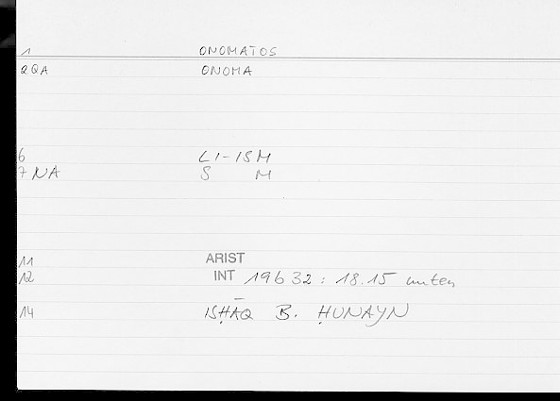 1 ONOMATOS
2QA ONOMA
6 LI-ISM
7 NA S M
11 ARIST
12 INT 19b 32 : 18.15 unten
14 ISḤĀQ B. ḤUNAYN